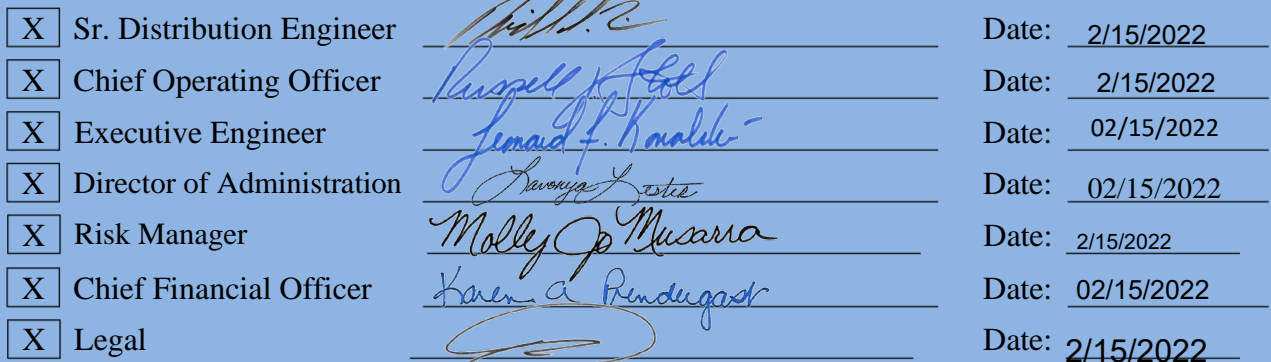 X Sr. Distribution Engineer Date: 2/15/2022
X Chief Operating Officer Russell Date: 2/15/2022
X Executive Engineer Leonard F. Date: 02/15/2022
X Director of Administration Lavonya Lester Date: 02/15/2022
X Risk Manager Molly Jo Musarra Date: 2/15/2022
X Chief Financial Officer Karen A Prendergast Date: 02/15/2022
X Legal Date: 2/15/2022